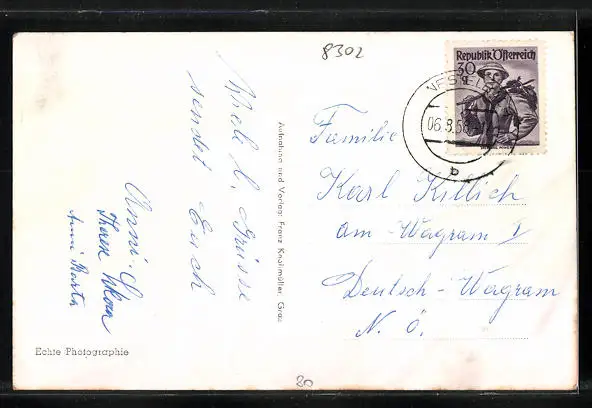 8302
Republik Österreich
30
g
06.8.58
b
Viele l. Grüsse
sendet Euch
Anni
Anni
Aufnahme und Verlag: Franz Knollmüller, Graz
Familie
Karl Killich
am Wagram I
Deutsch-Wagram
N. Ö.
Echte Photographie
20